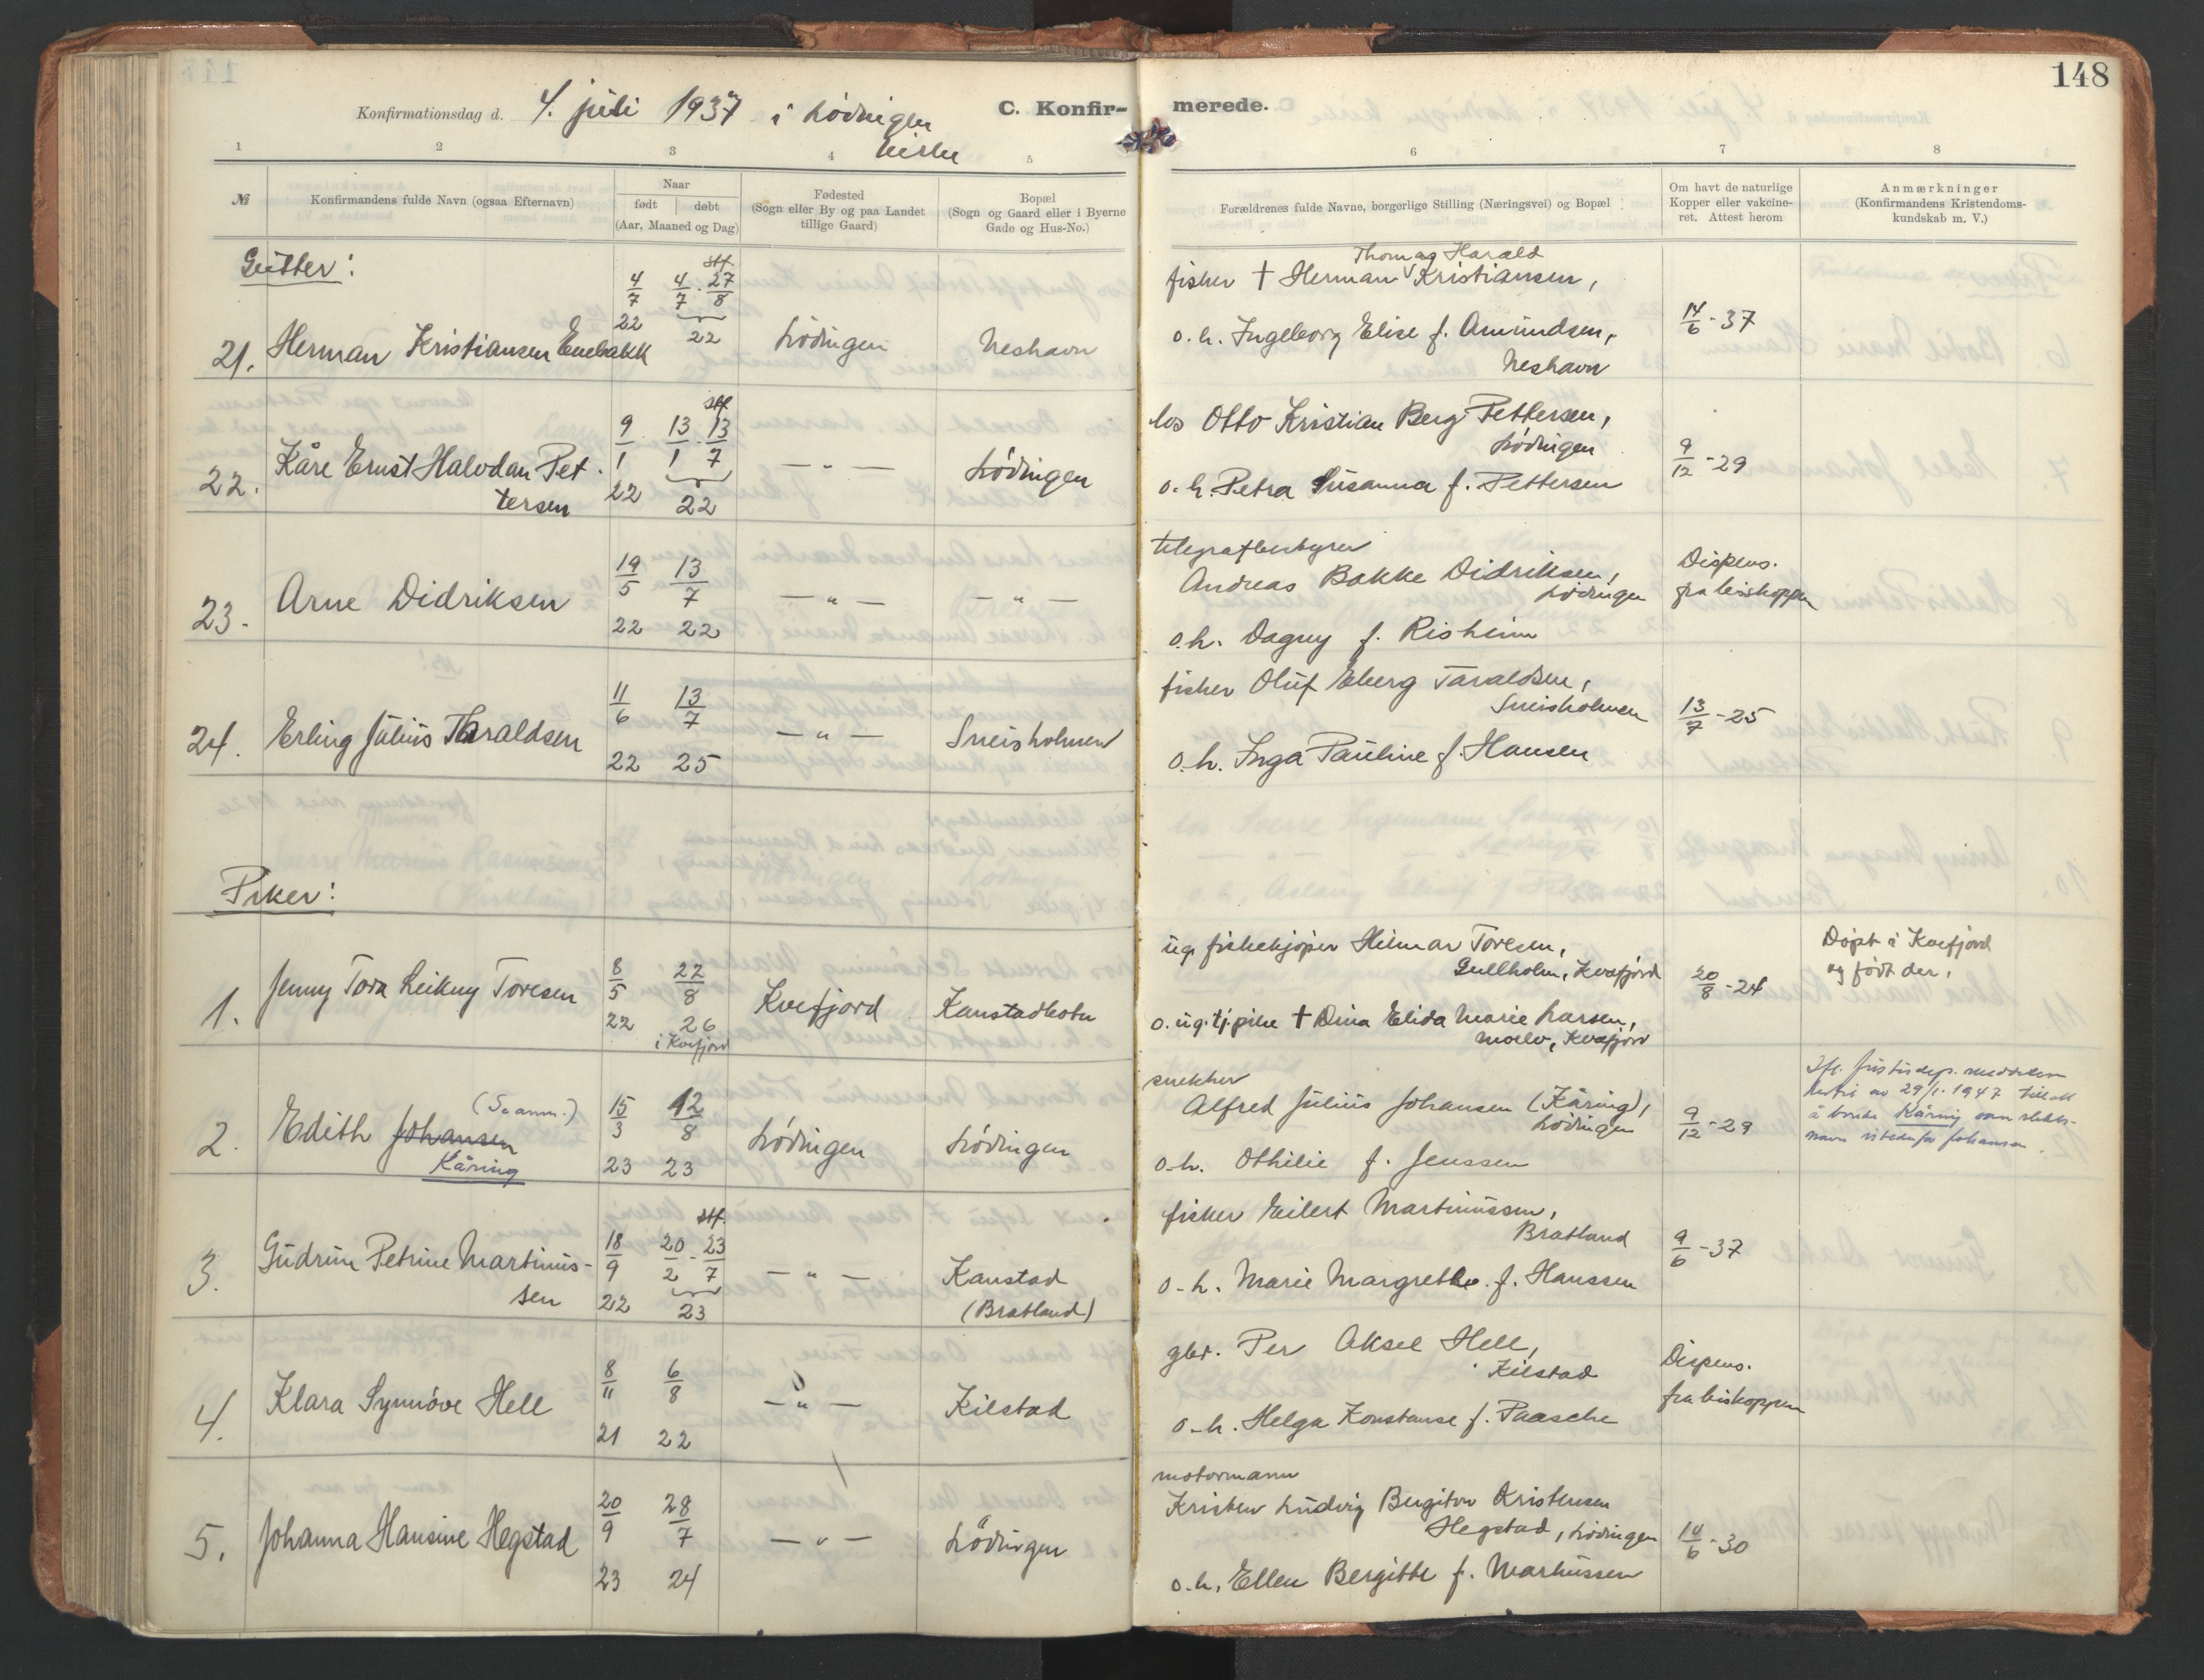 148
Konfirmationsdag d. 4. juli 1937 i Lödingen
kirke
C. Konfirmerede.
1 2 3 4 5 6 7 8
№
Konfirmandens fulde Navn (ogsaa Efternavn)
Naar
født døbt
(Aar, Maaned og Dag)
Fødested
(Sogn eller By og paa Landet
tillige Gaard)
Bopæl
(Sogn og Gaard eller i Byerne
Gade og Hus-No.)
Forældrenes fulde Navne, borgerlige Stilling (Næringsvei) og Bopæl
Om havt de naturlige
Kopper eller vakcine-
ret. Attest herom
Anmærkninger
(Konfirmandens Kristendoms-
kundskab m. V.)
Gutter:
21. Herman Kristiansen Enebakk
4/7 22
4/7 - 27/8 22
Lödingen
Neshavn
Thomas Harald
fisker † Herman Kristiansen,
o. h. Ingeborg Elise f. Amundsen,
Neshavn
14/6 - 37
22. Kåre Ernst Halvdan Pet-
tersen
9/1 22
13/1 - 13/7 22
— " —
Lödingen
los Otto Kristian Berg Pettersen,
Lödingen
o. h. Petra Susanna f. Pettersen
9/12 - 29
23. Arne Didriksen
19/5 22
13/7 22
— " —
— " —
telegrafbestyrer
Andreas Bakke Didriksen,
Lödingen
o. h. Dagny f. Risheim
Dispens.
fra biskoppen
24. Erling Julius Tharaldsen
11/6 22
13/7 25
— " —
Sneisholmen
fisker Oluf Eberg Taraldsen,
Sneisholmen
o. h. Inga Pauline f. Hansen
13/7 - 25
Piker:
1. Jenny Tora Leikny Toresen
8/5 22
22/8 26
i Kvefjord
Kvefjord
Kanstadbotn
ug. fiskekjøper Hilmar Toresen,
Gullholm, Kvefjord
o. ug. tj. pike † Dina Elida Marie Larsen,
Kvefjord
20/8 - 24
Døpt i Kvefjord
og født der.
2. Edith Johansen
(Se anm.)
Kåring
15/3 23
12/8 23
Lödingen
Lödingen
snekker
Alfred Julius Johansen (Kåring),
Lödingen
o. h. Othilie f. Jenssen
9/12 - 29
Ifl. Justisdep. meddelelse
av 29/1. 1947 tillatt
å bruke Kåring som slekts-
navn istedenfor Johansen.
3. Gudrun Petrine Martinus-
sen
18/9 22
20/2 - 23/7 23
— " —
Kanstad
(Bratland)
fisker Eilert Martinussen,
Bratland
o. h. Marie Margrethe f. Hanssen
9/6 - 37
4. Klara Synnöve Hell
8/11 21
6/8 22
— " —
Kilstad
gbr. Per Aksel Hell,
Kilstad
o. h. Helga Konstanse f. Paasche
Dispens.
fra biskoppen
5. Johanna Hansine Hegstad
20/9 23
28/7 24
— " —
Lödingen
motormann
Kristen Ludvig Bergiton Kristensen
Hegstad, Lödingen
o. h. Ellen Bergitte f. Markussen
14/6 - 30